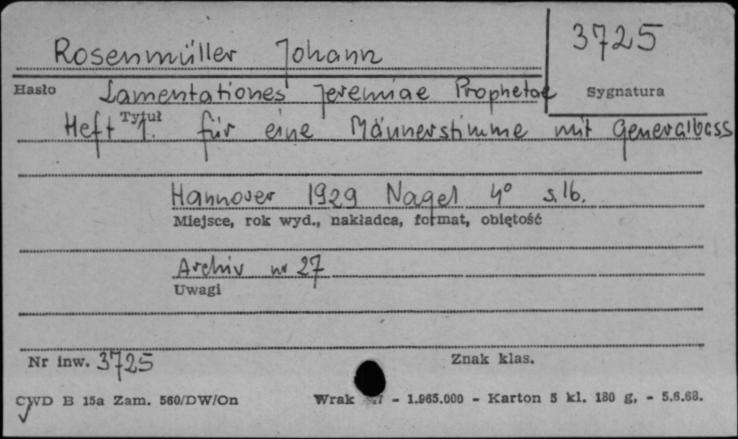 Rosenmüller Johann
3725
Hasło
Lamentationes Jeremiae Prophetae
Sygnatura
Tytuł
Heft 1. für eine Männerstimme mit Generalbass
Hannover 1929 Nagel 4° s.16.
Miejsce, rok wyd., nakładca, format, objętość
Archiv nr 27
Uwagi
Nr inw. 3725
Znak klas.
CWD B 15a Zam. 560/DW/On
Wrak - 1.965.000 - Karton 5 kl. 180 g, - 5.6.68.